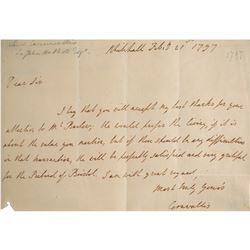 Whitehall Feb. 21st 1797
1797
Dear Sir
I beg that you will accept my best thanks for your
attention to Mr. Barlow; he would prefer the living, if it is
about the value you mention, but if there should be any difficulties
in that transaction, he will be perfectly satisfied and very grateful
for the Prebend of Bristol. I am with great regard,
Most truly Yours
Cornwallis